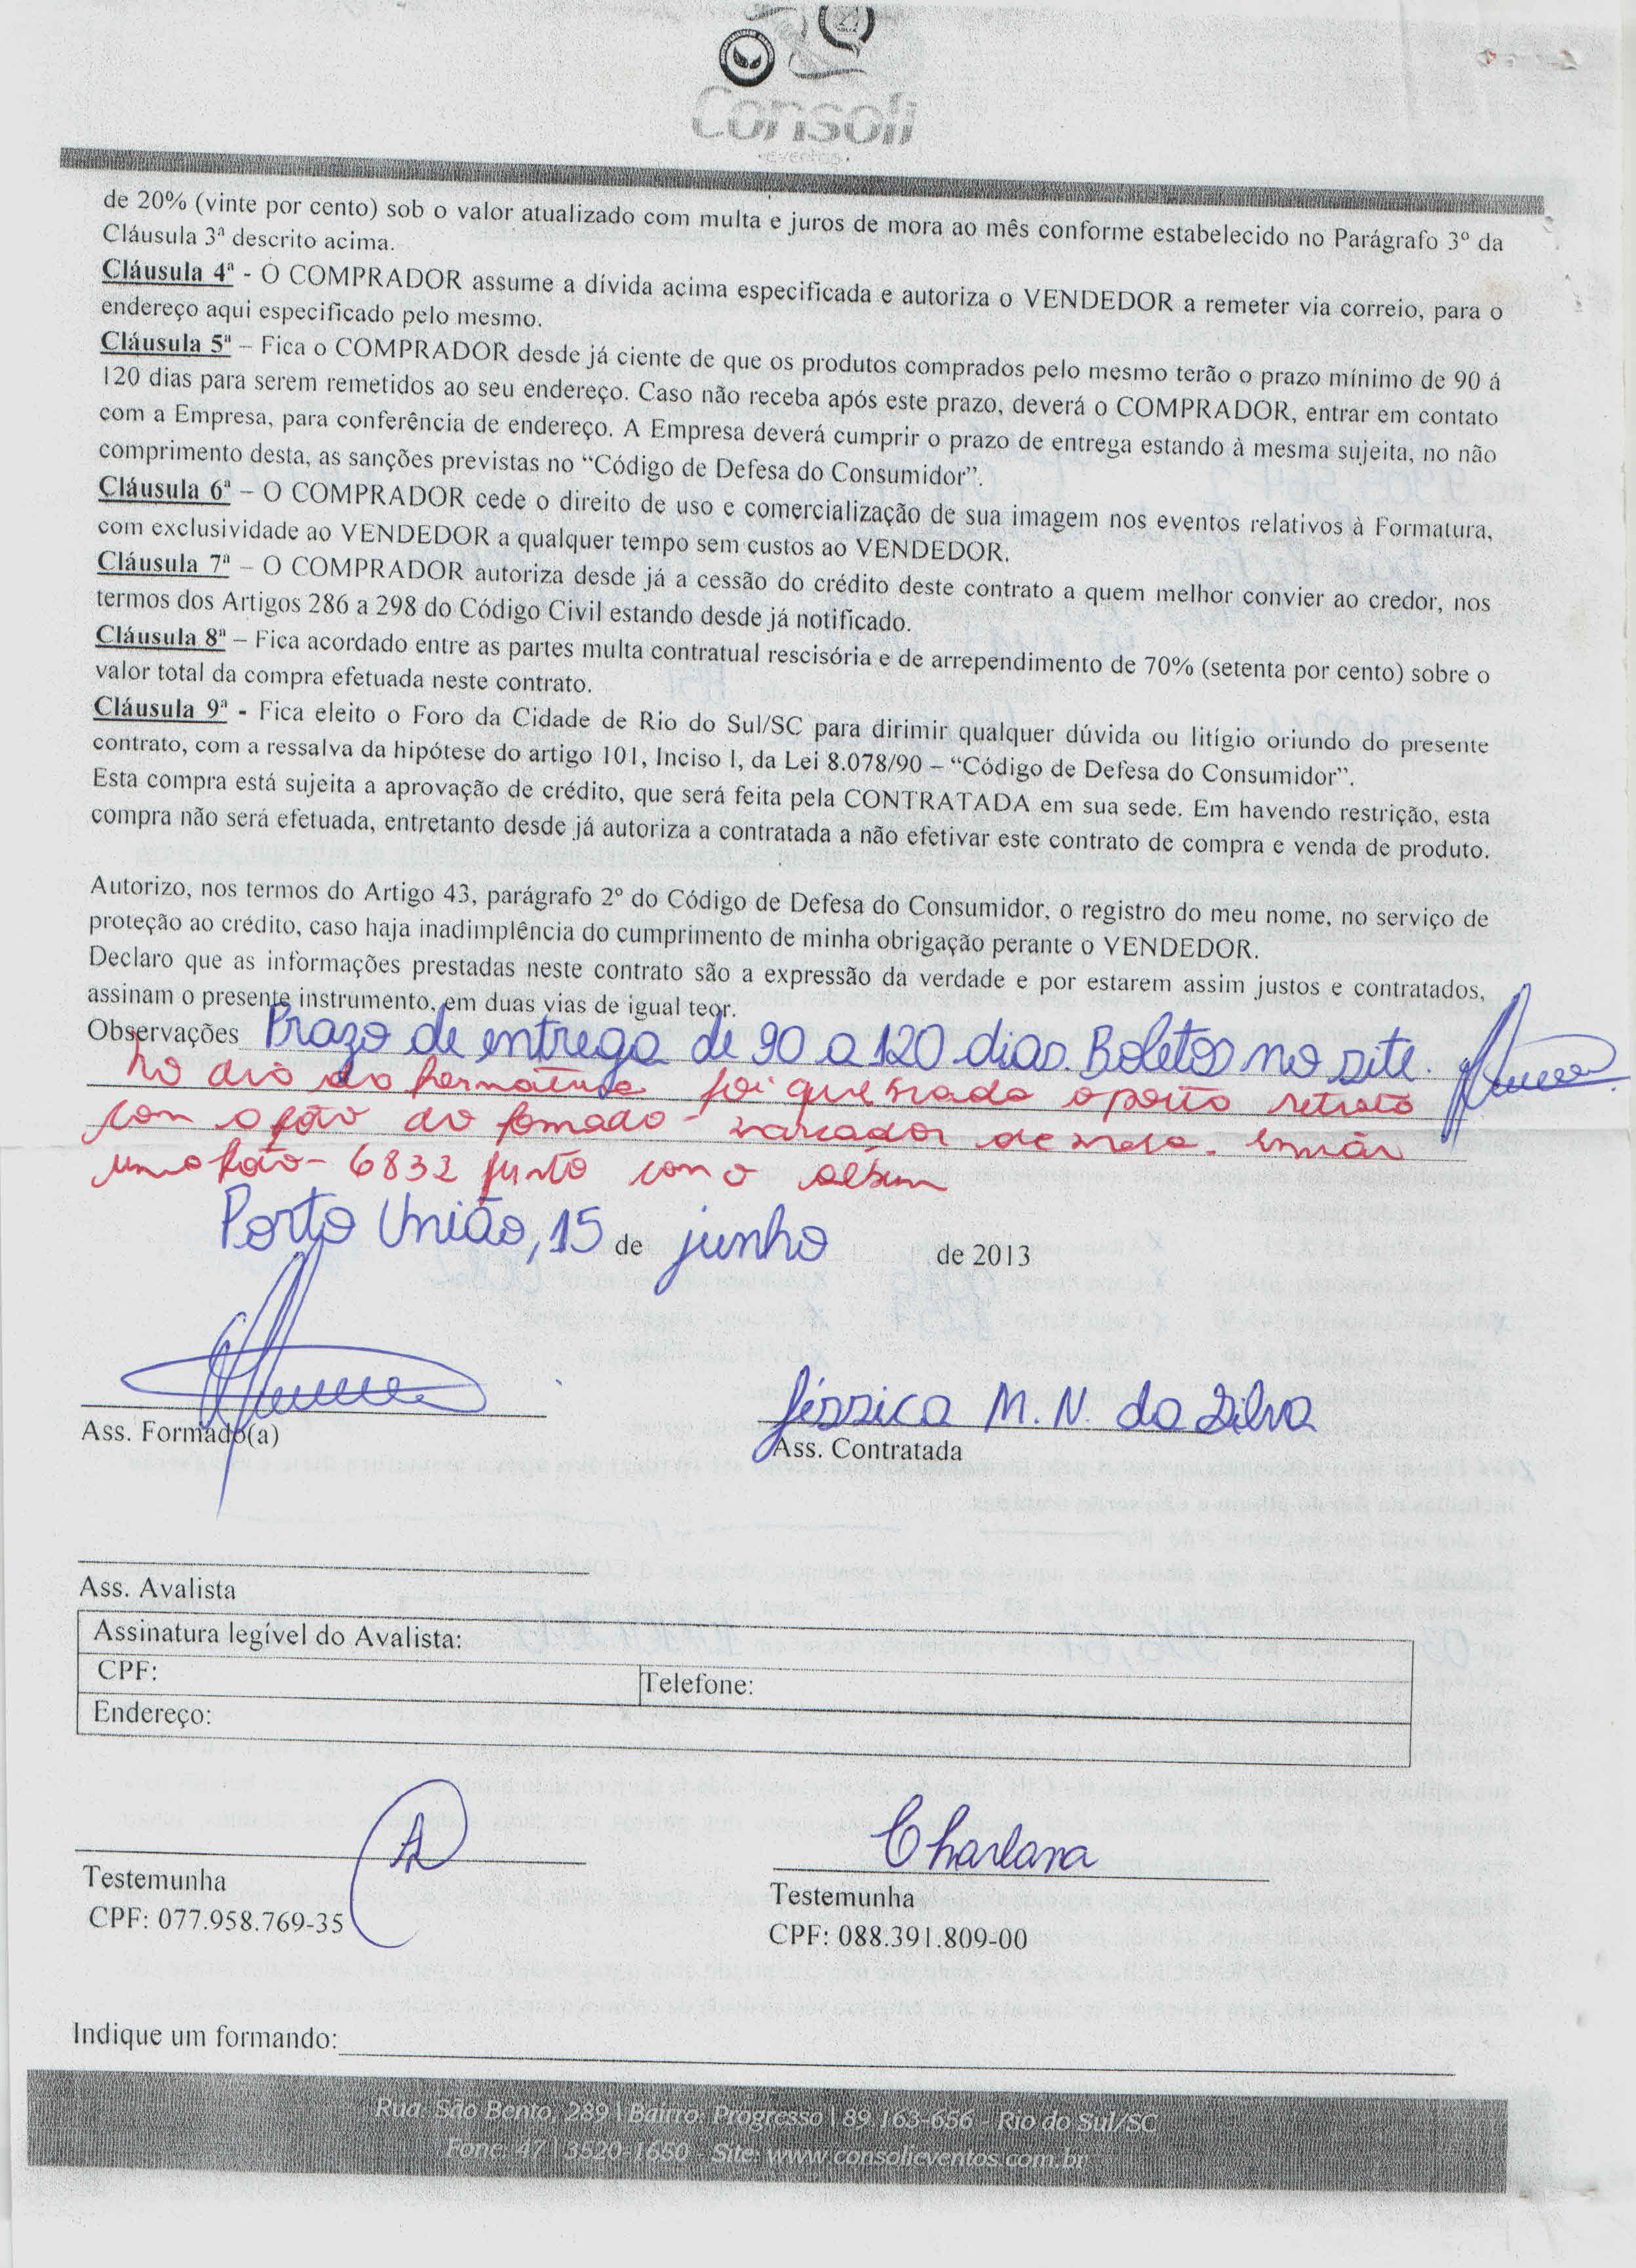 Consoli
eventos
de 20% (vinte por cento) sob o valor atualizado com multa e juros de mora ao mês conforme estabelecido no Parágrafo 3º da
Cláusula 3ª descrito acima.
Cláusula 4ª - O COMPRADOR assume a dívida acima especificada e autoriza o VENDEDOR a remeter via correio, para o
endereço aqui especificado pelo mesmo.
Cláusula 5ª – Fica o COMPRADOR desde já ciente de que os produtos comprados pelo mesmo terão o prazo mínimo de 90 á
120 dias para serem remetidos ao seu endereço. Caso não receba após este prazo, deverá o COMPRADOR, entrar em contato
com a Empresa, para conferência de endereço. A Empresa deverá cumprir o prazo de entrega estando à mesma sujeita, no não
comprimento desta, as sanções previstas no “Código de Defesa do Consumidor”.
Cláusula 6ª – O COMPRADOR cede o direito de uso e comercialização de sua imagem nos eventos relativos à Formatura,
com exclusividade ao VENDEDOR a qualquer tempo sem custos ao VENDEDOR.
Cláusula 7ª – O COMPRADOR autoriza desde já a cessão do crédito deste contrato a quem melhor convier ao credor, nos
termos dos Artigos 286 a 298 do Código Civil estando desde já notificado.
Cláusula 8ª – Fica acordado entre as partes multa contratual rescisória e de arrependimento de 70% (setenta por cento) sobre o
valor total da compra efetuada neste contrato.
Cláusula 9ª - Fica eleito o Foro da Cidade de Rio do Sul/SC para dirimir qualquer dúvida ou litígio oriundo do presente
contrato, com a ressalva da hipótese do artigo 101, Inciso I, da Lei 8.078/90 – “Código de Defesa do Consumidor”.
Esta compra está sujeita a aprovação de crédito, que será feita pela CONTRATADA em sua sede. Em havendo restrição, esta
compra não será efetuada, entretanto desde já autoriza a contratada a não efetivar este contrato de compra e venda de produto.
Autorizo, nos termos do Artigo 43, parágrafo 2º do Código de Defesa do Consumidor, o registro do meu nome, no serviço de
proteção ao crédito, caso haja inadimplência do cumprimento de minha obrigação perante o VENDEDOR.
Declaro que as informações prestadas neste contrato são a expressão da verdade e por estarem assim justos e contratados,
assinam o presente instrumento, em duas vias de igual teor.
Observações Prazo de entrega de 90 a 120 dias. Boletos no site.
no dia da formatura foi quebrado o porta retrato
com a foto do formado - marcador de mesa. Enviar
uma foto - 6832 junto com o album
Porto União, 15 de junho de 2013
Ass. Formado(a)
Jéssica M. N. da Silva
Ass. Contratada
Ass. Avalista
Assinatura legível do Avalista:
CPF: Telefone:
Endereço:
Charlana
Testemunha
CPF: 077.958.769-35
Testemunha
CPF: 088.391.809-00
Indique um formando:
Rua: São Bento, 289 | Bairro: Progresso | 89.163-656 - Rio do Sul/SC
Fone: 47 | 3520-1650 - Site: www.consolieventos.com.br